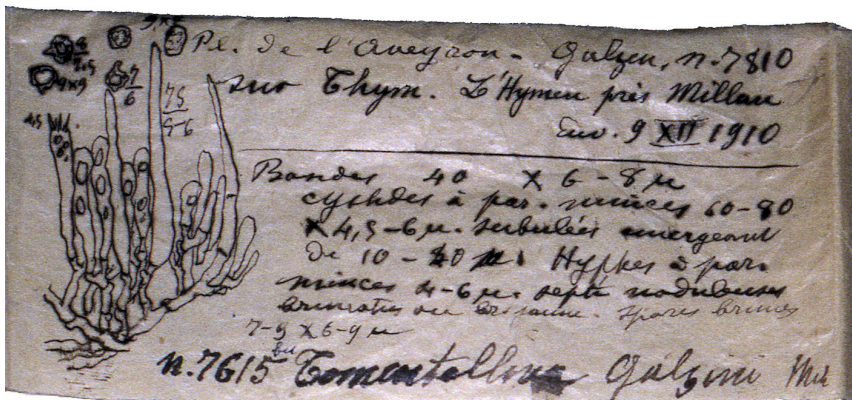 9 × 8
8
7,5
9 × 9
7
6
75
5-6
4,5
Pl. de l'Aveyron - Galzin, n. 7810
sur Thym. L'Hymen près Millau
Env. 9 XII 1910
Basides 40 × 6-8 µ
cystides à par. minces 60-80
× 4,5-6 µ. subulées émergeant
de 10 - 40 µ. Hyphes à par.
minces 4-6 µ. septa noduleuses
brunatres ou br. jaune. spores brunes
7-9 × 6-9 µ
n. 7615 Tomentellina Galzini